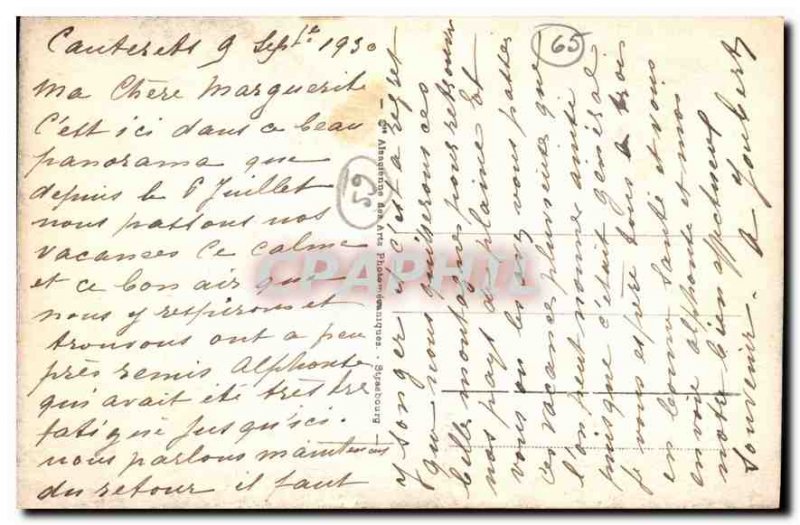 Cauterets 9 Sepbre 1930
Ma Chère Marguerite
C'est ici dans ce beau
panorama que
depuis le 6 Juillet
nous passons nos
vacances Ce calme
et ce bon air que
nous y respirons et
trouvons ont a peu
près remis Alphonse
qui avait été très
fatigué Jusqu'ici.
nous parlons maintenant
du retour il faut
y songer et c'est a regret
que nous quitterons ces
belles montagnes pour retrouver
nos pays de plaine Et
vous ou les avez vous passées
ces vacances pluvieuses que
l'on peut nommer ainsi
puisque c'était général
Je vous espère tous trois
en bonne santé et vous
envoie alphonse et moi
notre bien affectueux
souvenir.
a Joubert
65
59
Cie Alsacienne des Arts Photomécaniques. - Strasbourg
CPARHIL